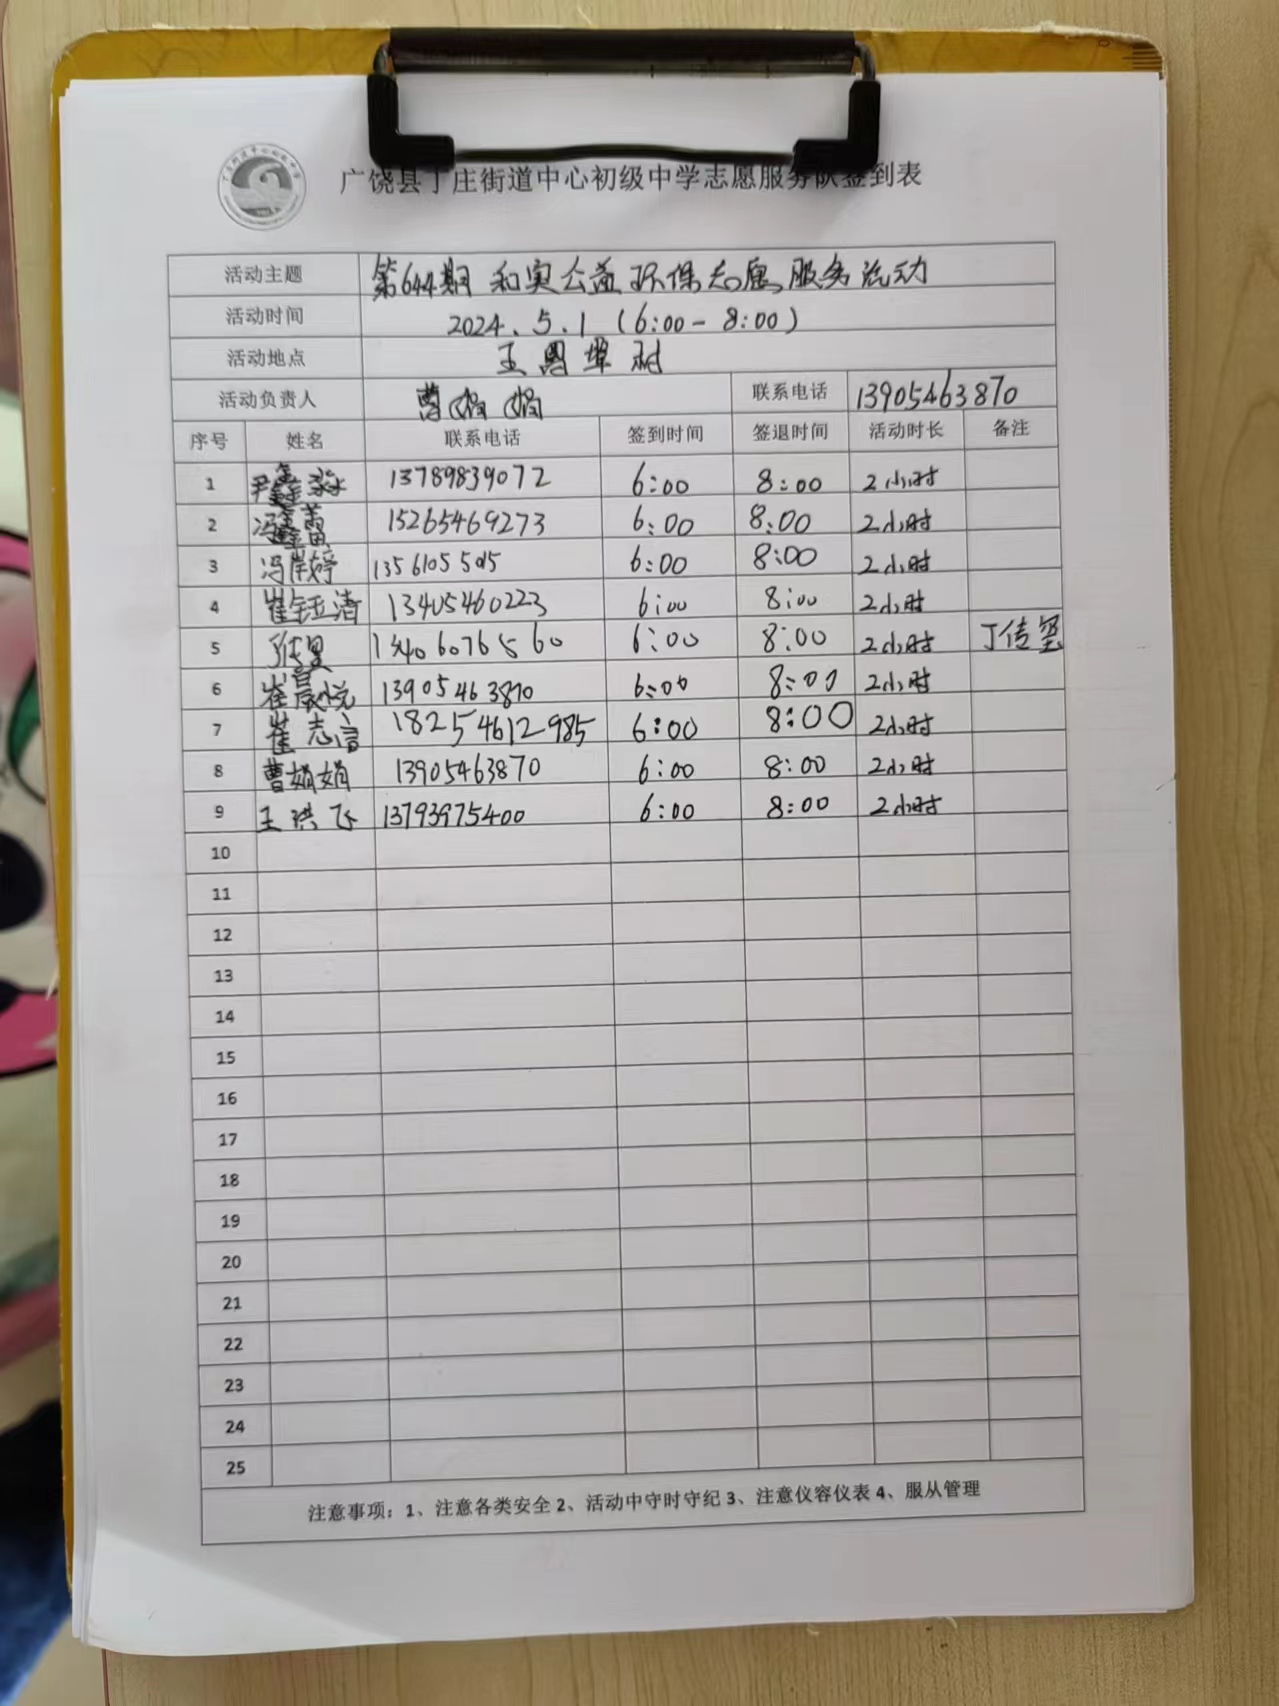 广饶县丁庄街道中心初级中学志愿服务队签到表
活动主题 第644期 和实公益环保志愿服务活动
活动时间 2024.5.1(6:00-8:00)
活动地点 王 村
活动负责人 曹娟娟 联系电话 13905463870
序号 姓名 联系电话 签到时间 签退时间 活动时长 备注
1 尹鑫淼 13789839072 6:00 8:00 2小时
2 冯鑫蕾 15265469273 6:00 8:00 2小时
3 冯婷 1356105 6:00 8:00 2小时
4 崔钰清 13405460223 6:00 8:00 2小时
5 13406076560 6:00 8:00 2小时 丁传玺
6 崔晨悦 13905463870 6:00 8:00 2小时
7 崔志言 18254612985 6:00 8:00 2小时
8 曹娟娟 13905463870 6:00 8:00 2小时
9 王洪飞 13793975400 6:00 8:00 2小时
10
11
12
13
14
15
16
17
18
19
20
21
22
23
24
25
注意事项:1、注意各类安全 2、活动中守时守纪 3、注意仪容仪表 4、服从管理